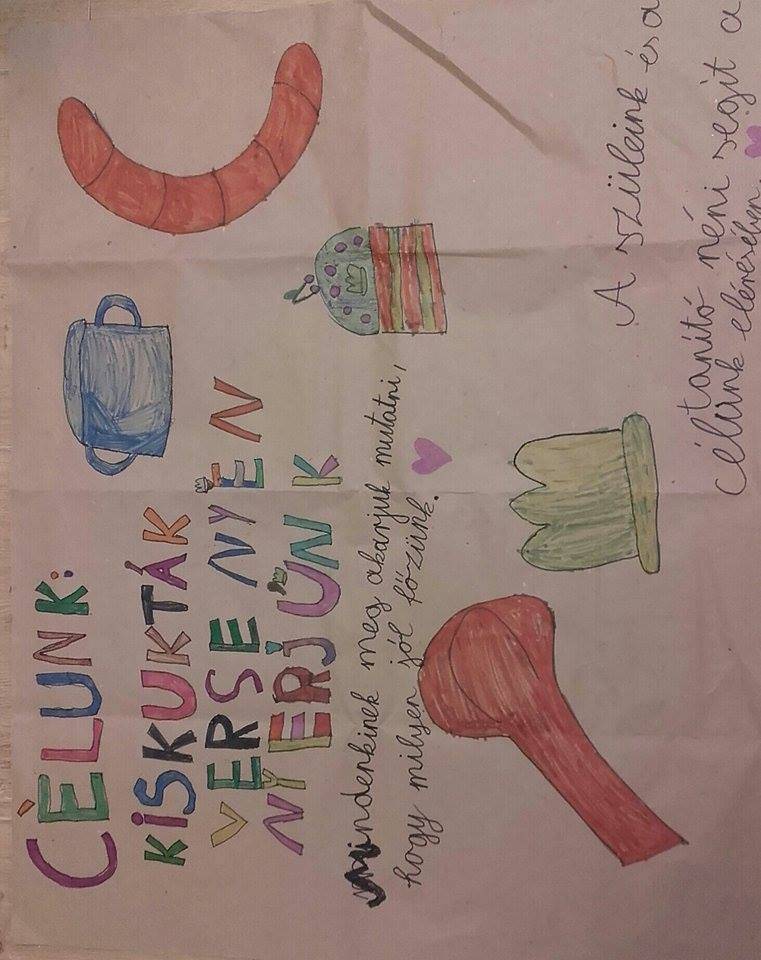 CÉLUNK:
KiSKUKTÁK
VERSENYÉN
NYERJÜNK
Mindenkinek meg akarjuk mutatni,
hogy milyen jól főzünk.
A szüleink és a
tanító néni segit a
célunk elérésében.